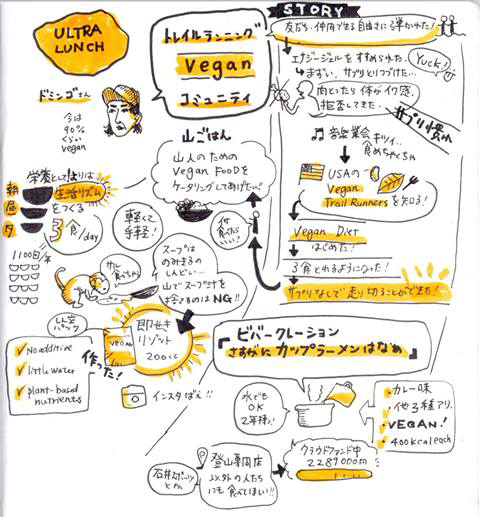 ULTRA
LUNCH
ドミンゴさん
今は
90%
ぐらい
vegan
トレイルランニング
vegan
コミュニティ
STORY
友だち、仲間で走る自由さに弾かれた!
エナジージェルをすすめられた。
まずい、サプリとりつづけた…
Yuck!
肉とったら体がイヤ感、
拒否してきた。
サプリ慣れ
音楽業会 キツイ…
食べめちゃくちゃ
USAの
Vegan
Trail Runners
を知る!
Vegan Diet
はじめた!
3食とれるようになった!
サプリなしで走り切ることができた!
山ごはん
山人のための
Vegan FOODを
ケータリングしてあげたい!
何
食べたら
いい?
栄養としてよりは
生活リズム
をつくる
朝
昼
夕
3食/day
1100日/年
軽くて
手軽!
スープは
のみきるの
しんどい…
山でスープ汁を
捨てるのはNG!!
即せき
リゾット
200cc
VEGAN
作った!
No additive
little water
plant-based
nutrients
インスタばえ!!
ビバークレーション
さすがにカップラーメンはなぁ
水でも
OK
2年持つ!
カレー味
他3種アリ。
VEGAN!
400kcal each
クラウドファンド中
2287000円
石井スポーツ
とか。
登山専門店
以外の人たち
にも食べてほしい!!